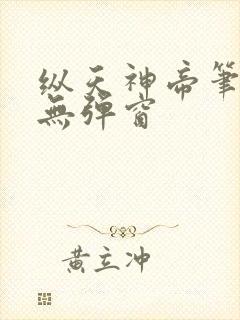 纵天神帝筆
無彈窗
黄立冲